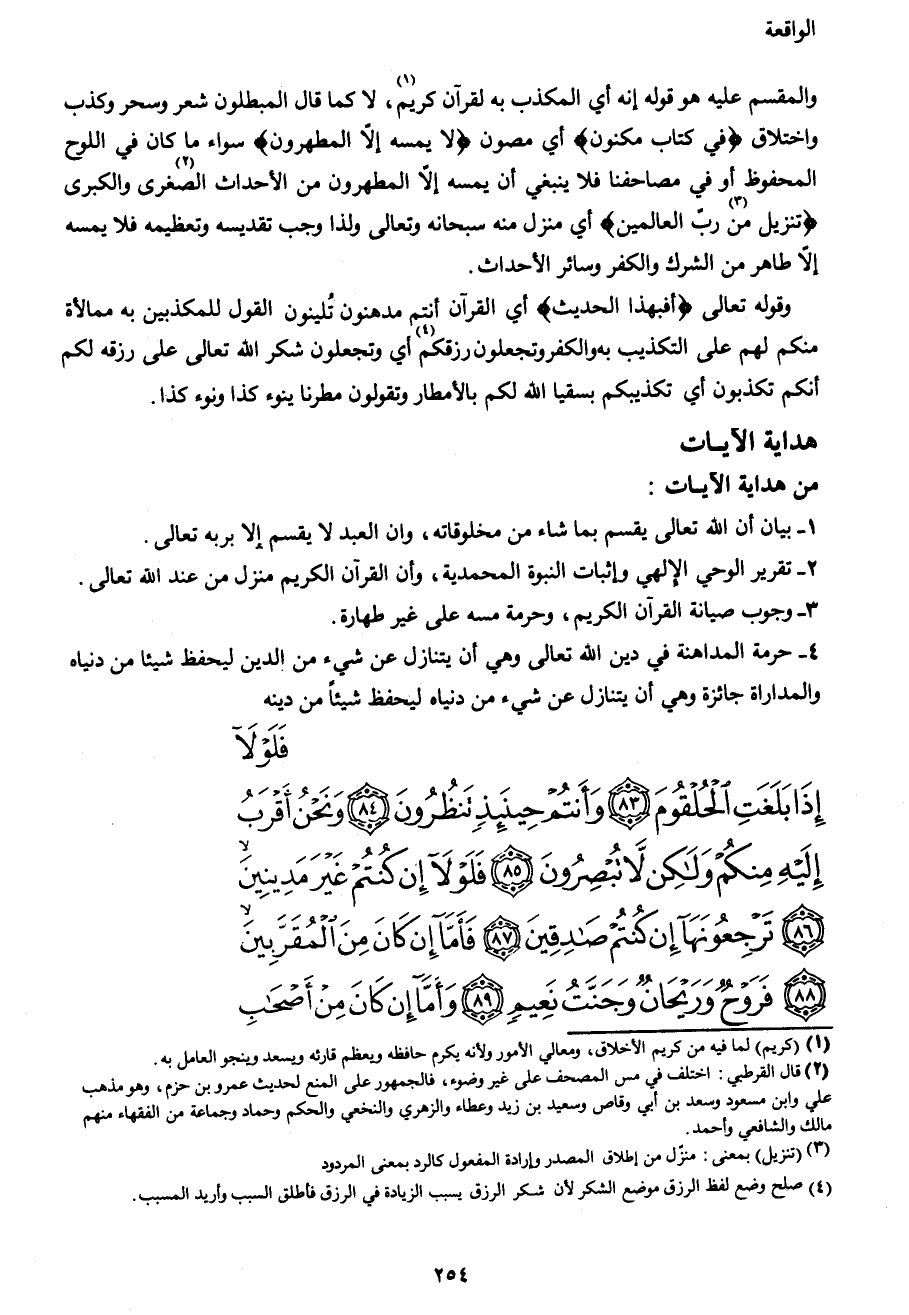 الواقعة
والمقسم عليه هو قوله إنه أي المكذب به لقرآن كريم(١)، لا كما قال المبطلون شعر وسحر وكذب
واختلاق ﴿في كتاب مكنون﴾ أي مصون ﴿لا يمسه إلاّ المطهرون﴾ سواء ما كان في اللوح
المحفوظ أو في مصاحفنا فلا ينبغي أن يمسه إلاّ المطهرون(٢) من الأحداث الصغرى والكبرى
﴿تنزيل(٣) من ربّ العالمين﴾ أي منزل منه سبحانه وتعالى ولذا وجب تقديسه وتعظيمه فلا يمسه
إلاّ طاهر من الشرك والكفر وسائر الأحداث.
وقوله تعالى ﴿أفبهذا الحديث﴾ أي القرآن أنتم مدهنون تُلينون القول للمكذبين به ممالأة
منكم لهم على التكذيب به والكفر وتجعلون رزقكم(٤) أي وتجعلون شكر الله تعالى على رزقه لكم
أنكم تكذبون أي تكذيبكم بسقيا الله لكم بالأمطار وتقولون مطرنا ينوء كذا ونوء كذا.
هداية الآيـات
من هداية الآيـات :
١ـ بيان أن الله تعالى يقسم بما شاء من مخلوقاته، وان العبد لا يقسم إلا بربه تعالى.
٢ـ تقرير الوحي الإلهي وإثبات النبوة المحمدية، وأن القرآن الكريم منزل من عند الله تعالى.
٣ـ وجوب صيانة القرآن الكريم، وحرمة مسه على غير طهارة.
٤ـ حرمة المداهنة في دين الله تعالى وهي أن يتنازل عن شيء من الدين ليحفظ شيئا من دنياه
والمداراة جائزة وهي أن يتنازل عن شيء من دنياه ليحفظ شيئاً من دينه
فَلَوْلَآ
إِذَا بَلَغَتِ ٱلْحُلْقُومَ ٨٣ وَأَنتُمْ حِينَئِذٍ تَنظُرُونَ ٨٤ وَنَحْنُ أَقْرَبُ
إِلَيْهِ مِنكُمْ وَلَٰكِن لَّا تُبْصِرُونَ ٨٥ فَلَوْلَآ إِن كُنتُمْ غَيْرَ مَدِينِينَ
٨٦ تَرْجِعُونَهَآ إِن كُنتُمْ صَٰدِقِينَ ٨٧ فَأَمَّآ إِن كَانَ مِنَ ٱلْمُقَرَّبِينَ
٨٨ فَرَوْحٌ وَرَيْحَانٌ وَجَنَّتُ نَعِيمٍ ٨٩ وَأَمَّآ إِن كَانَ مِنْ أَصْحَٰبِ
(١) (كريم) لما فيه من كريم الأخلاق، ومعالي الأمور ولأنه يكرم حافظه ويعظم قارئه ويسعد وينجو العامل به.
(٢) قال القرطبي : اختلف في مس المصحف على غير وضوء، فالجمهور على المنع لحديث عمرو بن حزم، وهو مذهب
علي وابن مسعود وسعد بن أبي وقاص وسعيد بن زيد وعطاء والزهري والنخعي والحكم وحماد وجماعة من الفقهاء منهم
مالك والشافعي وأحمد.
(٣) (تنزيل) بمعنى : منزّل من إطلاق المصدر وإرادة المفعول كالرد بمعنى المردود
(٤) صلح وضع لفظ الرزق موضع الشكر لأن شكر الرزق يسبب الزيادة في الرزق فأطلق السبب وأريد المسبب.
٢٥٤